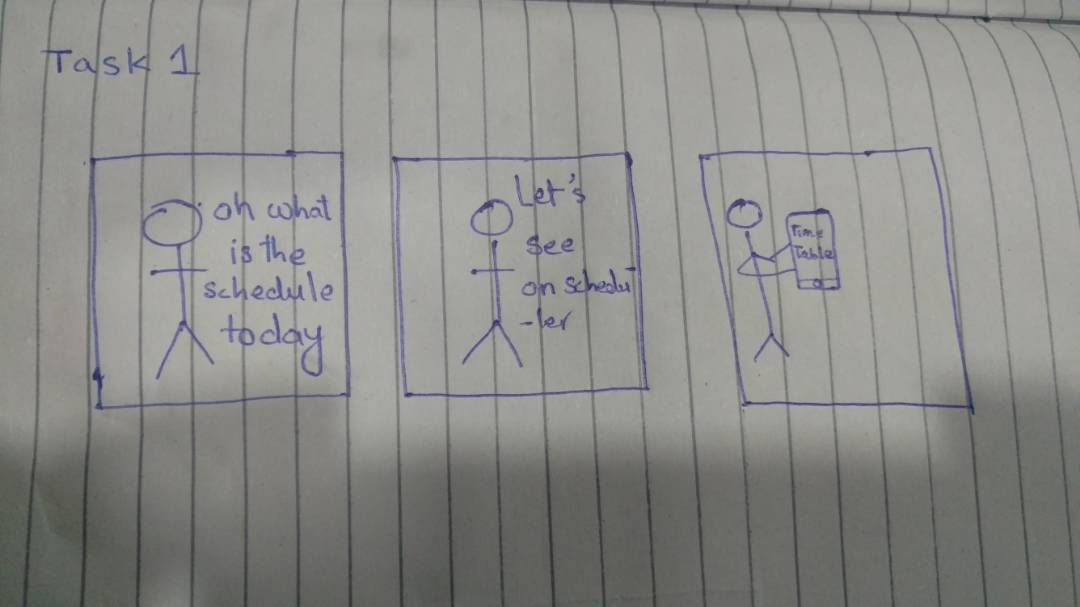 Task 1
oh what
is the
schedule
today
Let's
see
on schedu
-ler
Time
Table